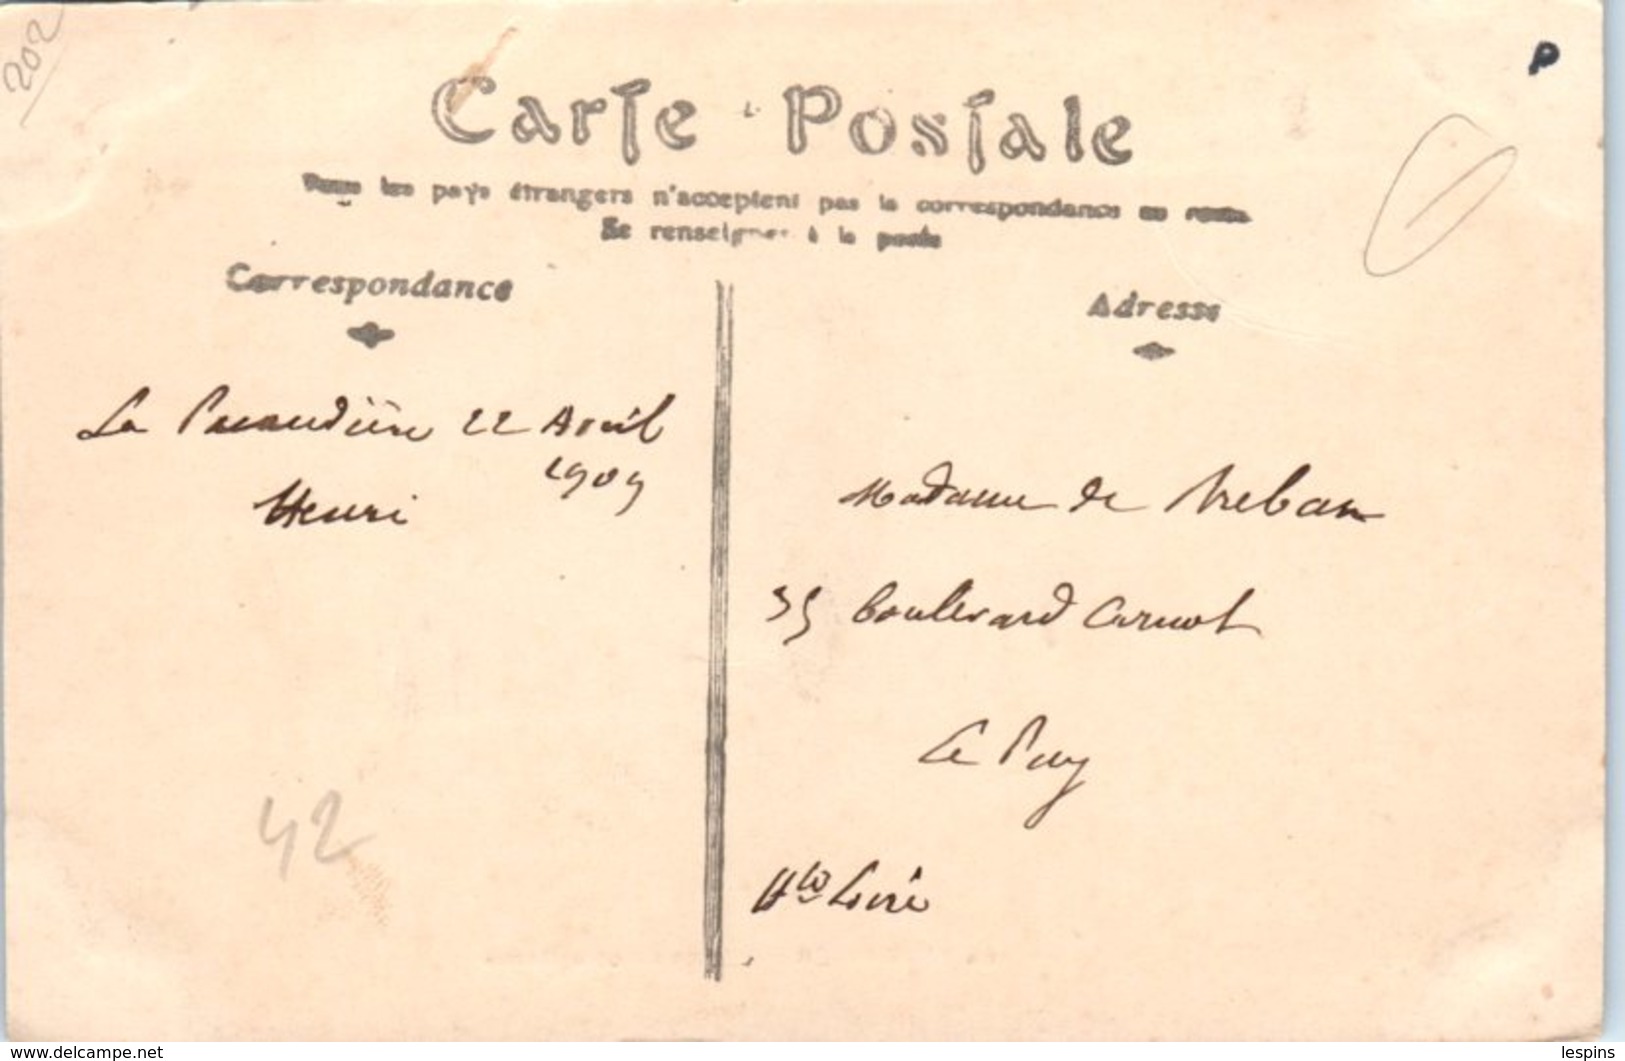 202
P
Carte Postale
Tous les pays étrangers n'acceptent pas la correspondance au recto
Se renseigner à la poste
Correspondance
Adresse
La Pacaudière 22 Avril
1909
Henri
Madame de
35 boulevard Carnot
Le Puy
Hte Loire
42
www.delcampe.net
lespins